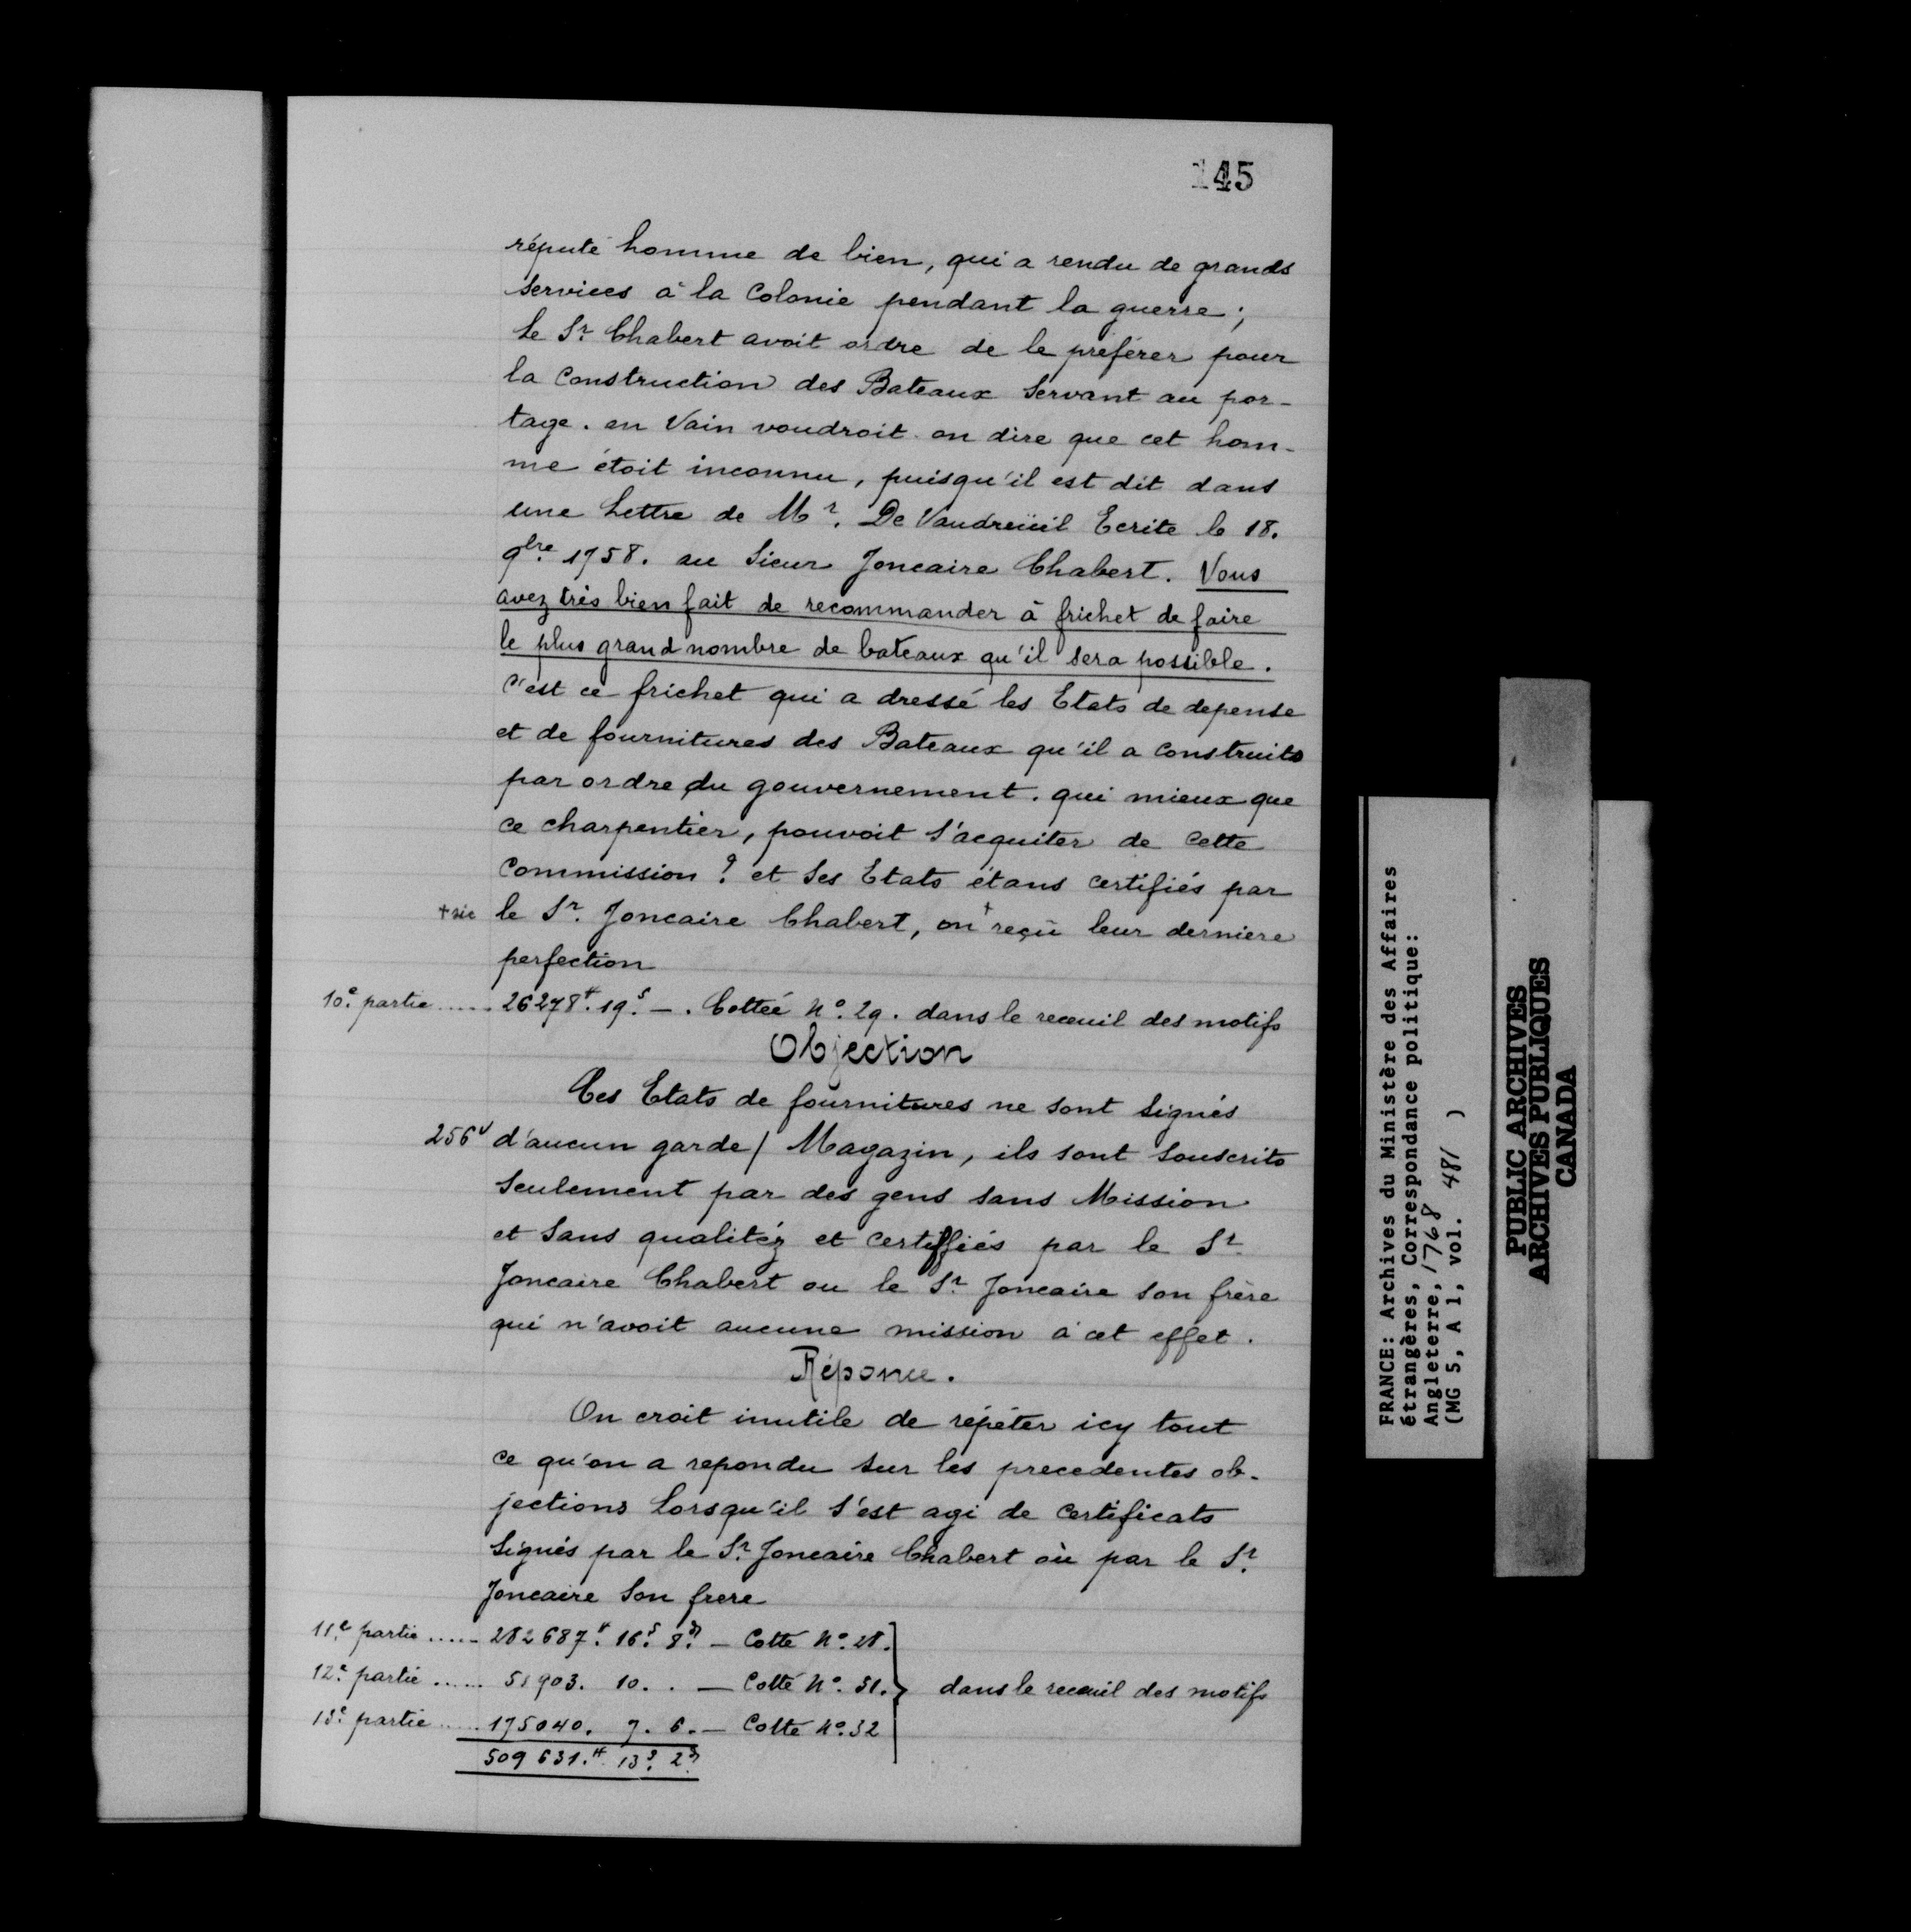 145
réputé homme de bien, qui a rendu de grands
services à la Colonie pendant la guerre ;
le Sr. Chabert avoit ordre de le préférer pour
la Construction des Bateaux Servant au por-
tage. en Vain voudroit-on dire que cet hom-
me étoit inconnu, puisqu'il est dit dans
une Lettre de Mr. De Vaudreüil Ecrite le 18.
9bre 1758. au Sieur Joncaire Chabert. Vous
avez très bien fait de recommander à frichet de faire
le plus grand nombre de bateaux qu'il sera possible.
C'est ce frichet qui a dressé les Etats de depense
et de fournitures des Bateaux qu'il a Construits
par ordre du gouvernement. qui mieux que
ce charpentier, pouvoit s'acquiter de Cette
Commission ? et Ses Etats étans Certifiés par
+ sic le Sr. Joncaire Chabert, on + reçû leur derniere
perfection
10e. partie ..... 26278#. 19s. — . Cottée No. 29. dans le receuil des motifs
Objection
Ces Etats de fournitures ne sont Signés
256v d'aucun garde/ Magazin, ils sont Souscrits
Seulement par des gens sans Mission
et Sans qualitéz et Certiffiés par le Sr.
Joncaire Chabert ou le Sr. Joncaire son frère
qui n'avoit aucune mission à cet effet.
Réponse.
On croit inutile de répéter icy tout
ce qu'on a repondu sur les precedentes ob-
jections Lorsqu'il s'est agi de Certificats
Signés par le Sr. Joncaire Chabert où par le Sr.
Joncaire Son frere
11e. partie ..... 282687.# 16.s 8.d — Cotté No. 28.
12e. partie ..... 51903. 10. . — Cotté No. 31. } dans le receuil des motifs
13e. partie ..... 175040. 7. 6. — Cotté No. 32
509631.# 13s. 2d
FRANCE: Archives du Ministère des Affaires
étrangères, Correspondance politique:
Angleterre, 1768
(MG 5, A 1, vol. 481 )
PUBLIC ARCHIVES
ARCHIVES PUBLIQUES
CANADA